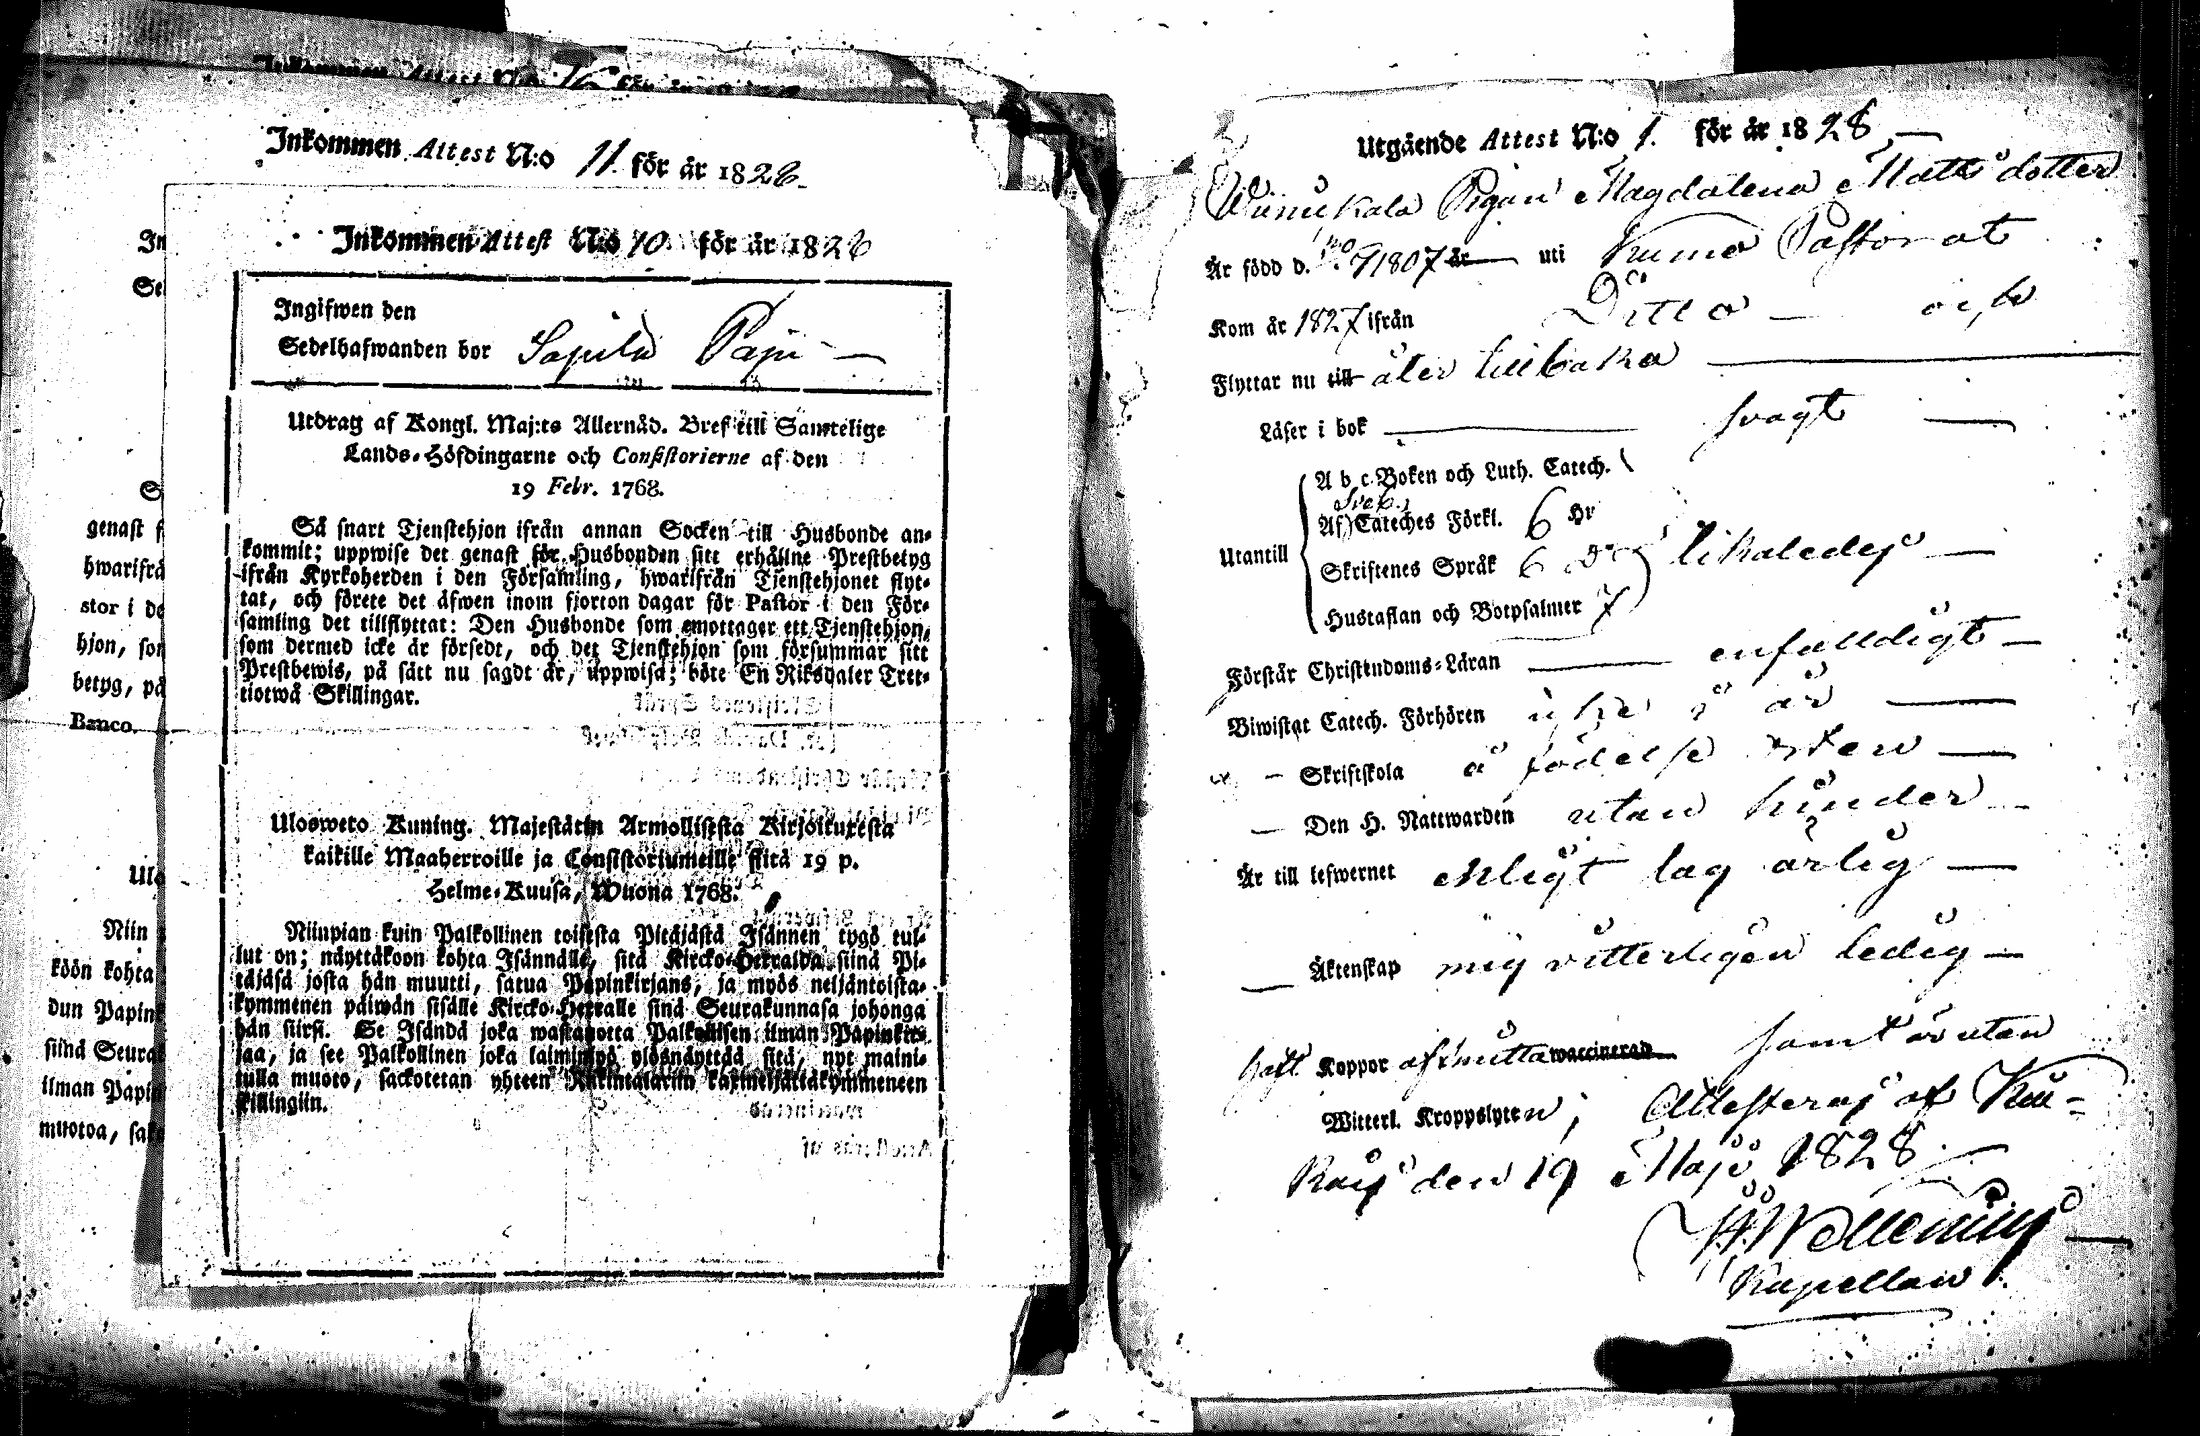 Inkommen Attest N:o 11. för år 1828
Inkommen Attest N:o 10. för år 1828
Ingifwen den
Sedelhafwanden bor Sapila Papi
Utdrag af Kongl. Maj:ts Allernåd. Bref till Samtelige
Lands-Höfdingarne och Consistorierne af den
19 Febr. 1768.
Så snart Tjenstehjon ifrån annan Socken till Husbonde an-
kommit; uppwise det genast för Husbonden sitt erhållne Prestbetyg
ifrån Kyrkoherden i den Församling, hwarifrån Tjenstehjonet flyt-
tat, och förete det äfwen inom fjorton dagar för Pastor i den För-
samling det tillflyttat: Den Husbonde som emottager ett Tjenstehjon,
som dermed icke är försedt, och det Tjenstehjon som försummar sitt
Prestbewis, på sätt nu sagdt är, uppwisa; böte En Riksdaler Tret-
tiotwå Skillingar.
Ulosweto Kuning. Majestätin Armollisesta Kirjoituxesta
kaikille Maaherroille ja Consistoriumeille siitä 19 p.
Helme-Kuusa, Wuona 1768.
Niinpian kuin Palkollinen toisesta Pitäjästä Isännen tygö tul-
lut on; näyttäköön kohta Isännälle, sitä Kircko-Herralda siinä Pi-
täjäsä josta hän muutti, saatua Papinkirjans, ja myös neljäntoista-
kymmenen päiwän sisälle Kircko-Herralle siinä Seurakunnasa johonga
hän siirsi. Se Isändä joka wastanotta Palkollisen ilman Papinkir-
jaa, ja see Palkollinen joka laiminlyö ylösnäyttää sitä, nyt maini-
tulla muoto, sackotetan yhteen Riikintalariin kaxineljättäkymmeneen
skillingiin.
genast f
hwarifrå
stor i de
hjon, son
betyg, på
Banco.
Niin
köön kohta
dun Papink
siinä Seurak
ilman Papin
muotoa, sak
Utgående Attest N:o 1. för år 1828
Pigan Magdalena Matts dotter
Är född d. 1807 år uti Kumo Pastorat
Kom år 1827 ifrån Ditto och
Flyttar nu till åter tillbaka
Läser i bok svagt
A b c Boken och Luth. Catech.
Sveb.
Af) Cateches Förkl. 6 Hr
Utantill Skriftenes Språk 6 D:o likaledes
Hustaflan och Botpsalmer 7
Förstår Christendoms-Läran enfalldigt
Biwistat Catech. Förhören icke i år
Skriftskola å födelse orten
Den H. Nattwarden utan hinder
Är till lefwernet enligt lag ärlig
Äktenskap mig vitterligen ledig
haft Koppor waccinerad samt är utan
Witterl. Kroppslyten; Attesteras af Kiu-
kais den 19 Maji 1828
Kapellan